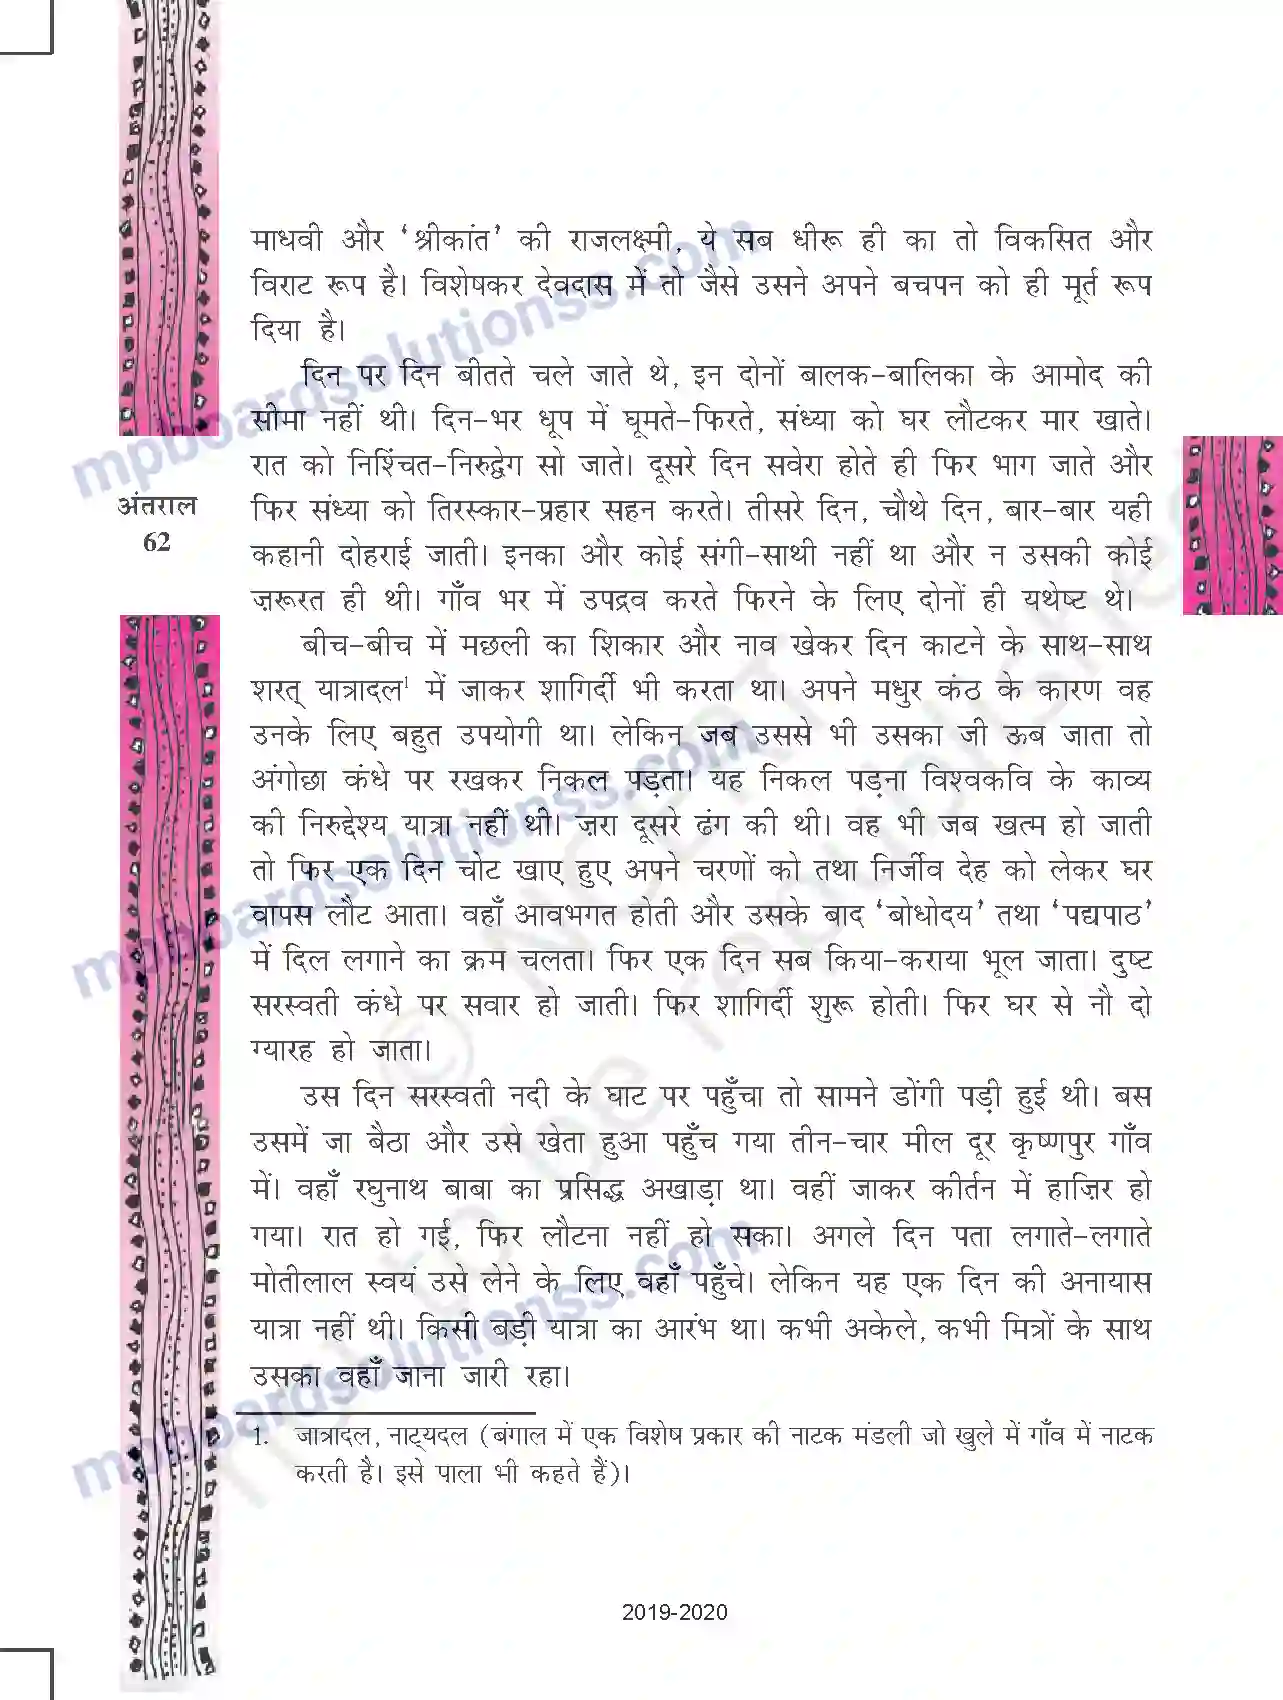 माधवी और ‘श्रीकांत’ की राजलक्ष्मी, ये सब धीरू ही का तो विकसित और
विराट रूप है। विशेषकर देवदास में तो जैसे उसने अपने बचपन को ही मूर्त रूप
दिया है।
दिन पर दिन बीतते चले जाते थे, इन दोनों बालक-बालिका के आमोद की
सीमा नहीं थी। दिन-भर धूप में घूमते-फिरते, संध्या को घर लौटकर मार खाते।
रात को निश्चिंत-निरुद्वेग सो जाते। दूसरे दिन सवेरा होते ही फिर भाग जाते और
अंतराल
62
फिर संध्या को तिरस्कार-प्रहार सहन करते। तीसरे दिन, चौथे दिन, बार-बार यही
कहानी दोहराई जाती। इनका और कोई संगी-साथी नहीं था और न उसकी कोई
ज़रूरत ही थी। गाँव भर में उपद्रव करते फिरने के लिए दोनों ही यथेष्ट थे।
बीच-बीच में मछली का शिकार और नाव खेकर दिन काटने के साथ-साथ
शरत् यात्रादल¹ में जाकर शागिर्दी भी करता था। अपने मधुर कंठ के कारण वह
उनके लिए बहुत उपयोगी था। लेकिन जब उससे भी उसका जी ऊब जाता तो
अंगोछा कंधे पर रखकर निकल पड़ता। यह निकल पड़ना विश्वकवि के काव्य
की निरुद्देश्य यात्रा नहीं थी। ज़रा दूसरे ढंग की थी। वह भी जब खत्म हो जाती
तो फिर एक दिन चोट खाए हुए अपने चरणों को तथा निर्जीव देह को लेकर घर
वापस लौट आता। वहाँ आवभगत होती और उसके बाद ‘बोधोदय’ तथा ‘पद्यपाठ’
में दिल लगाने का क्रम चलता। फिर एक दिन सब किया-कराया भूल जाता। दुष्ट
सरस्वती कंधे पर सवार हो जाती। फिर शागिर्दी शुरू होती। फिर घर से नौ दो
ग्यारह हो जाता।
उस दिन सरस्वती नदी के घाट पर पहुँचा तो सामने डोंगी पड़ी हुई थी। बस
उसमें जा बैठा और उसे खेता हुआ पहुँच गया तीन-चार मील दूर कृष्णपुर गाँव
में। वहाँ रघुनाथ बाबा का प्रसिद्ध अखाड़ा था। वहीं जाकर कीर्तन में हाज़िर हो
गया। रात हो गई, फिर लौटना नहीं हो सका। अगले दिन पता लगाते-लगाते
मोतीलाल स्वयं उसे लेने के लिए वहाँ पहुँचे। लेकिन यह एक दिन की अनायास
यात्रा नहीं थी। किसी बड़ी यात्रा का आरंभ था। कभी अकेले, कभी मित्रों के साथ
उसका वहाँ जाना जारी रहा।
1. जात्रादल, नाट्यदल (बंगाल में एक विशेष प्रकार की नाटक मंडली जो खुले में गाँव में नाटक
करती है। इसे पाला भी कहते हैं)।
2019-2020
mpboardsolutionss.com
mpboardsolutionss.com
mpboardsolutionss.com
© NCERT
not to be republished